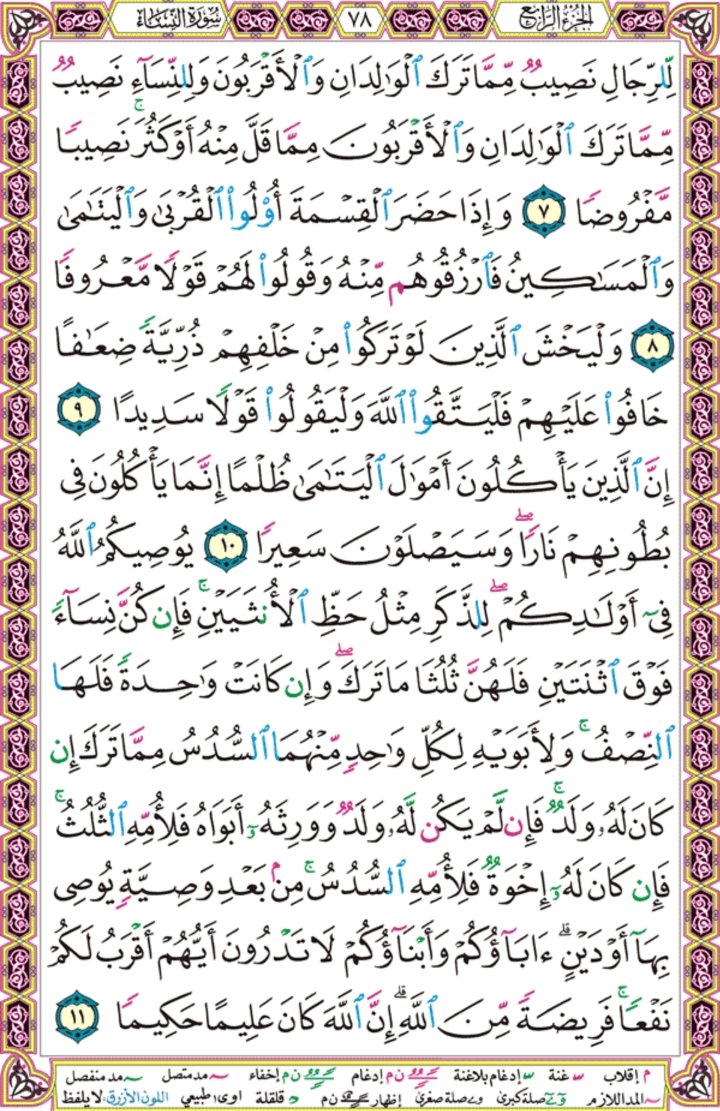 الجزء الرابع ٧٨ سورة النساء
لِّلرِّجَالِ نَصِيبٌ مِّمَّا تَرَكَ ٱلْوَٰلِدَانِ وَٱلْأَقْرَبُونَ وَلِلنِّسَآءِ نَصِيبٌ
مِّمَّا تَرَكَ ٱلْوَٰلِدَانِ وَٱلْأَقْرَبُونَ مِمَّا قَلَّ مِنْهُ أَوْ كَثُرَ ۚ نَصِيبًا
مَّفْرُوضًا ٧ وَإِذَا حَضَرَ ٱلْقِسْمَةَ أُو۟لُوا۟ ٱلْقُرْبَىٰ وَٱلْيَتَٰمَىٰ
وَٱلْمَسَٰكِينُ فَٱرْزُقُوهُم مِّنْهُ وَقُولُوا۟ لَهُمْ قَوْلًا مَّعْرُوفًا
٨ وَلْيَخْشَ ٱلَّذِينَ لَوْ تَرَكُوا۟ مِنْ خَلْفِهِمْ ذُرِّيَّةً ضِعَٰفًا
خَافُوا۟ عَلَيْهِمْ فَلْيَتَّقُوا۟ ٱللَّهَ وَلْيَقُولُوا۟ قَوْلًا سَدِيدًا ٩
إِنَّ ٱلَّذِينَ يَأْكُلُونَ أَمْوَٰلَ ٱلْيَتَٰمَىٰ ظُلْمًا إِنَّمَا يَأْكُلُونَ فِى
بُطُونِهِمْ نَارًا ۖ وَسَيَصْلَوْنَ سَعِيرًا ١٠ يُوصِيكُمُ ٱللَّهُ
فِىٓ أَوْلَٰدِكُمْ ۖ لِلذَّكَرِ مِثْلُ حَظِّ ٱلْأُنثَيَيْنِ ۚ فَإِن كُنَّ نِسَآءً
فَوْقَ ٱثْنَتَيْنِ فَلَهُنَّ ثُلُثَا مَا تَرَكَ ۖ وَإِن كَانَتْ وَٰحِدَةً فَلَهَا
ٱلنِّصْفُ ۚ وَلِأَبَوَيْهِ لِكُلِّ وَٰحِدٍ مِّنْهُمَا ٱلسُّدُسُ مِمَّا تَرَكَ إِن
كَانَ لَهُۥ وَلَدٌ ۚ فَإِن لَّمْ يَكُن لَّهُۥ وَلَدٌ وَوَرِثَهُۥٓ أَبَوَاهُ فَلِأُمِّهِ ٱلثُّلُثُ ۚ
فَإِن كَانَ لَهُۥٓ إِخْوَةٌ فَلِأُمِّهِ ٱلسُّدُسُ ۚ مِنۢ بَعْدِ وَصِيَّةٍ يُوصِى
بِهَآ أَوْ دَيْنٍ ۗ ءَابَآؤُكُمْ وَأَبْنَآؤُكُمْ لَا تَدْرُونَ أَيُّهُمْ أَقْرَبُ لَكُمْ
نَفْعًا ۚ فَرِيضَةً مِّنَ ٱللَّهِ ۗ إِنَّ ٱللَّهَ كَانَ عَلِيمًا حَكِيمًا ١١
م إقلاب غنة إدغام بلاغنة ن م إدغام ن م إخفاء مد متصل مد منفصل
المد اللازم صلة كبرى صلة صغرى إظهار ن م قلقلة اوى طبيعي اللون الأزرق: لايلفظ